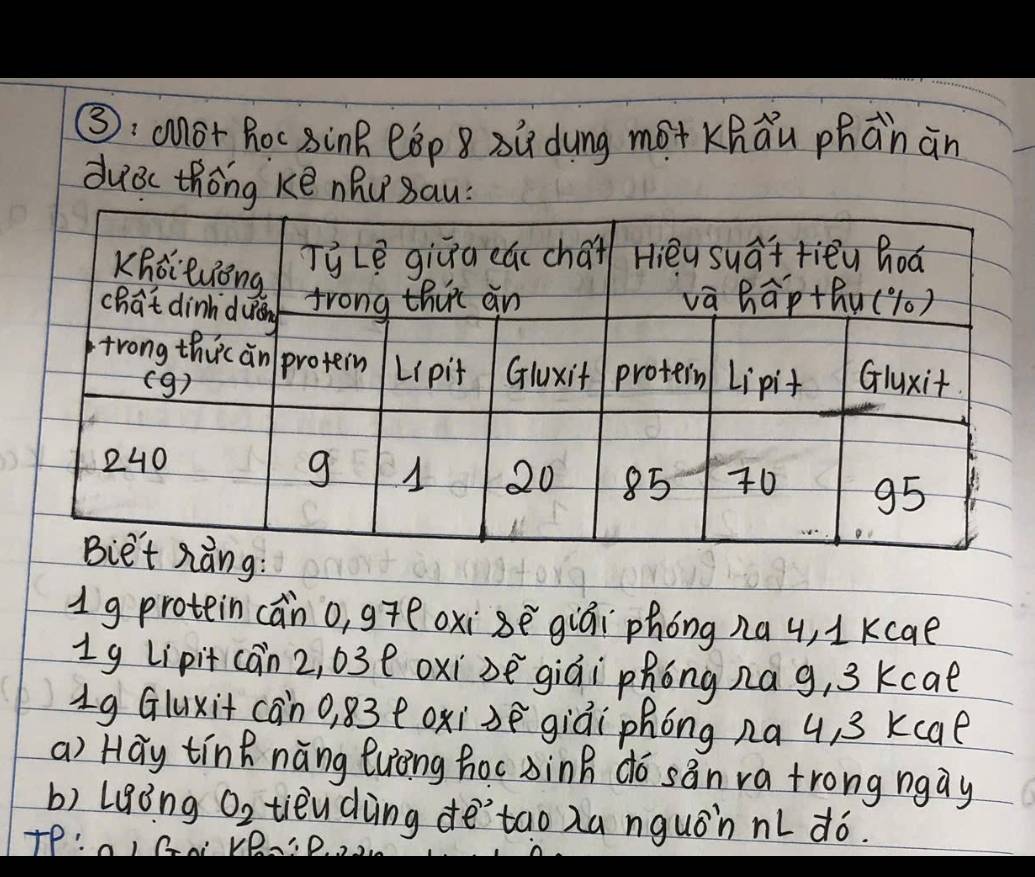 ③: Một học sinh lớp 8 sử dụng một khẩu phần ăn
được thống kê như sau:
Khối lượng chất dinh dưỡng trong thức ăn (g)
Tỷ Lệ giữa các chất trong thức ăn
Hiệu suất tiêu hoá và hấp thụ (%)
protein Lipit Gluxit protein Lipit Gluxit
240 9 1 20 85 70 95
Biết rằng:
1g protein cần 0,97l oxi sẽ giải phóng ra 4,1 Kcal
1g Lipit cần 2,03l oxi sẽ giải phóng ra 9,3 Kcal
1g Gluxit cần 0,83l oxi sẽ giải phóng ra 4,3 Kcal
a) Hãy tính năng lượng học sinh đó sản ra trong ngày
b) Lượng O₂ tiêu dùng để tạo ra nguồn nL đó.